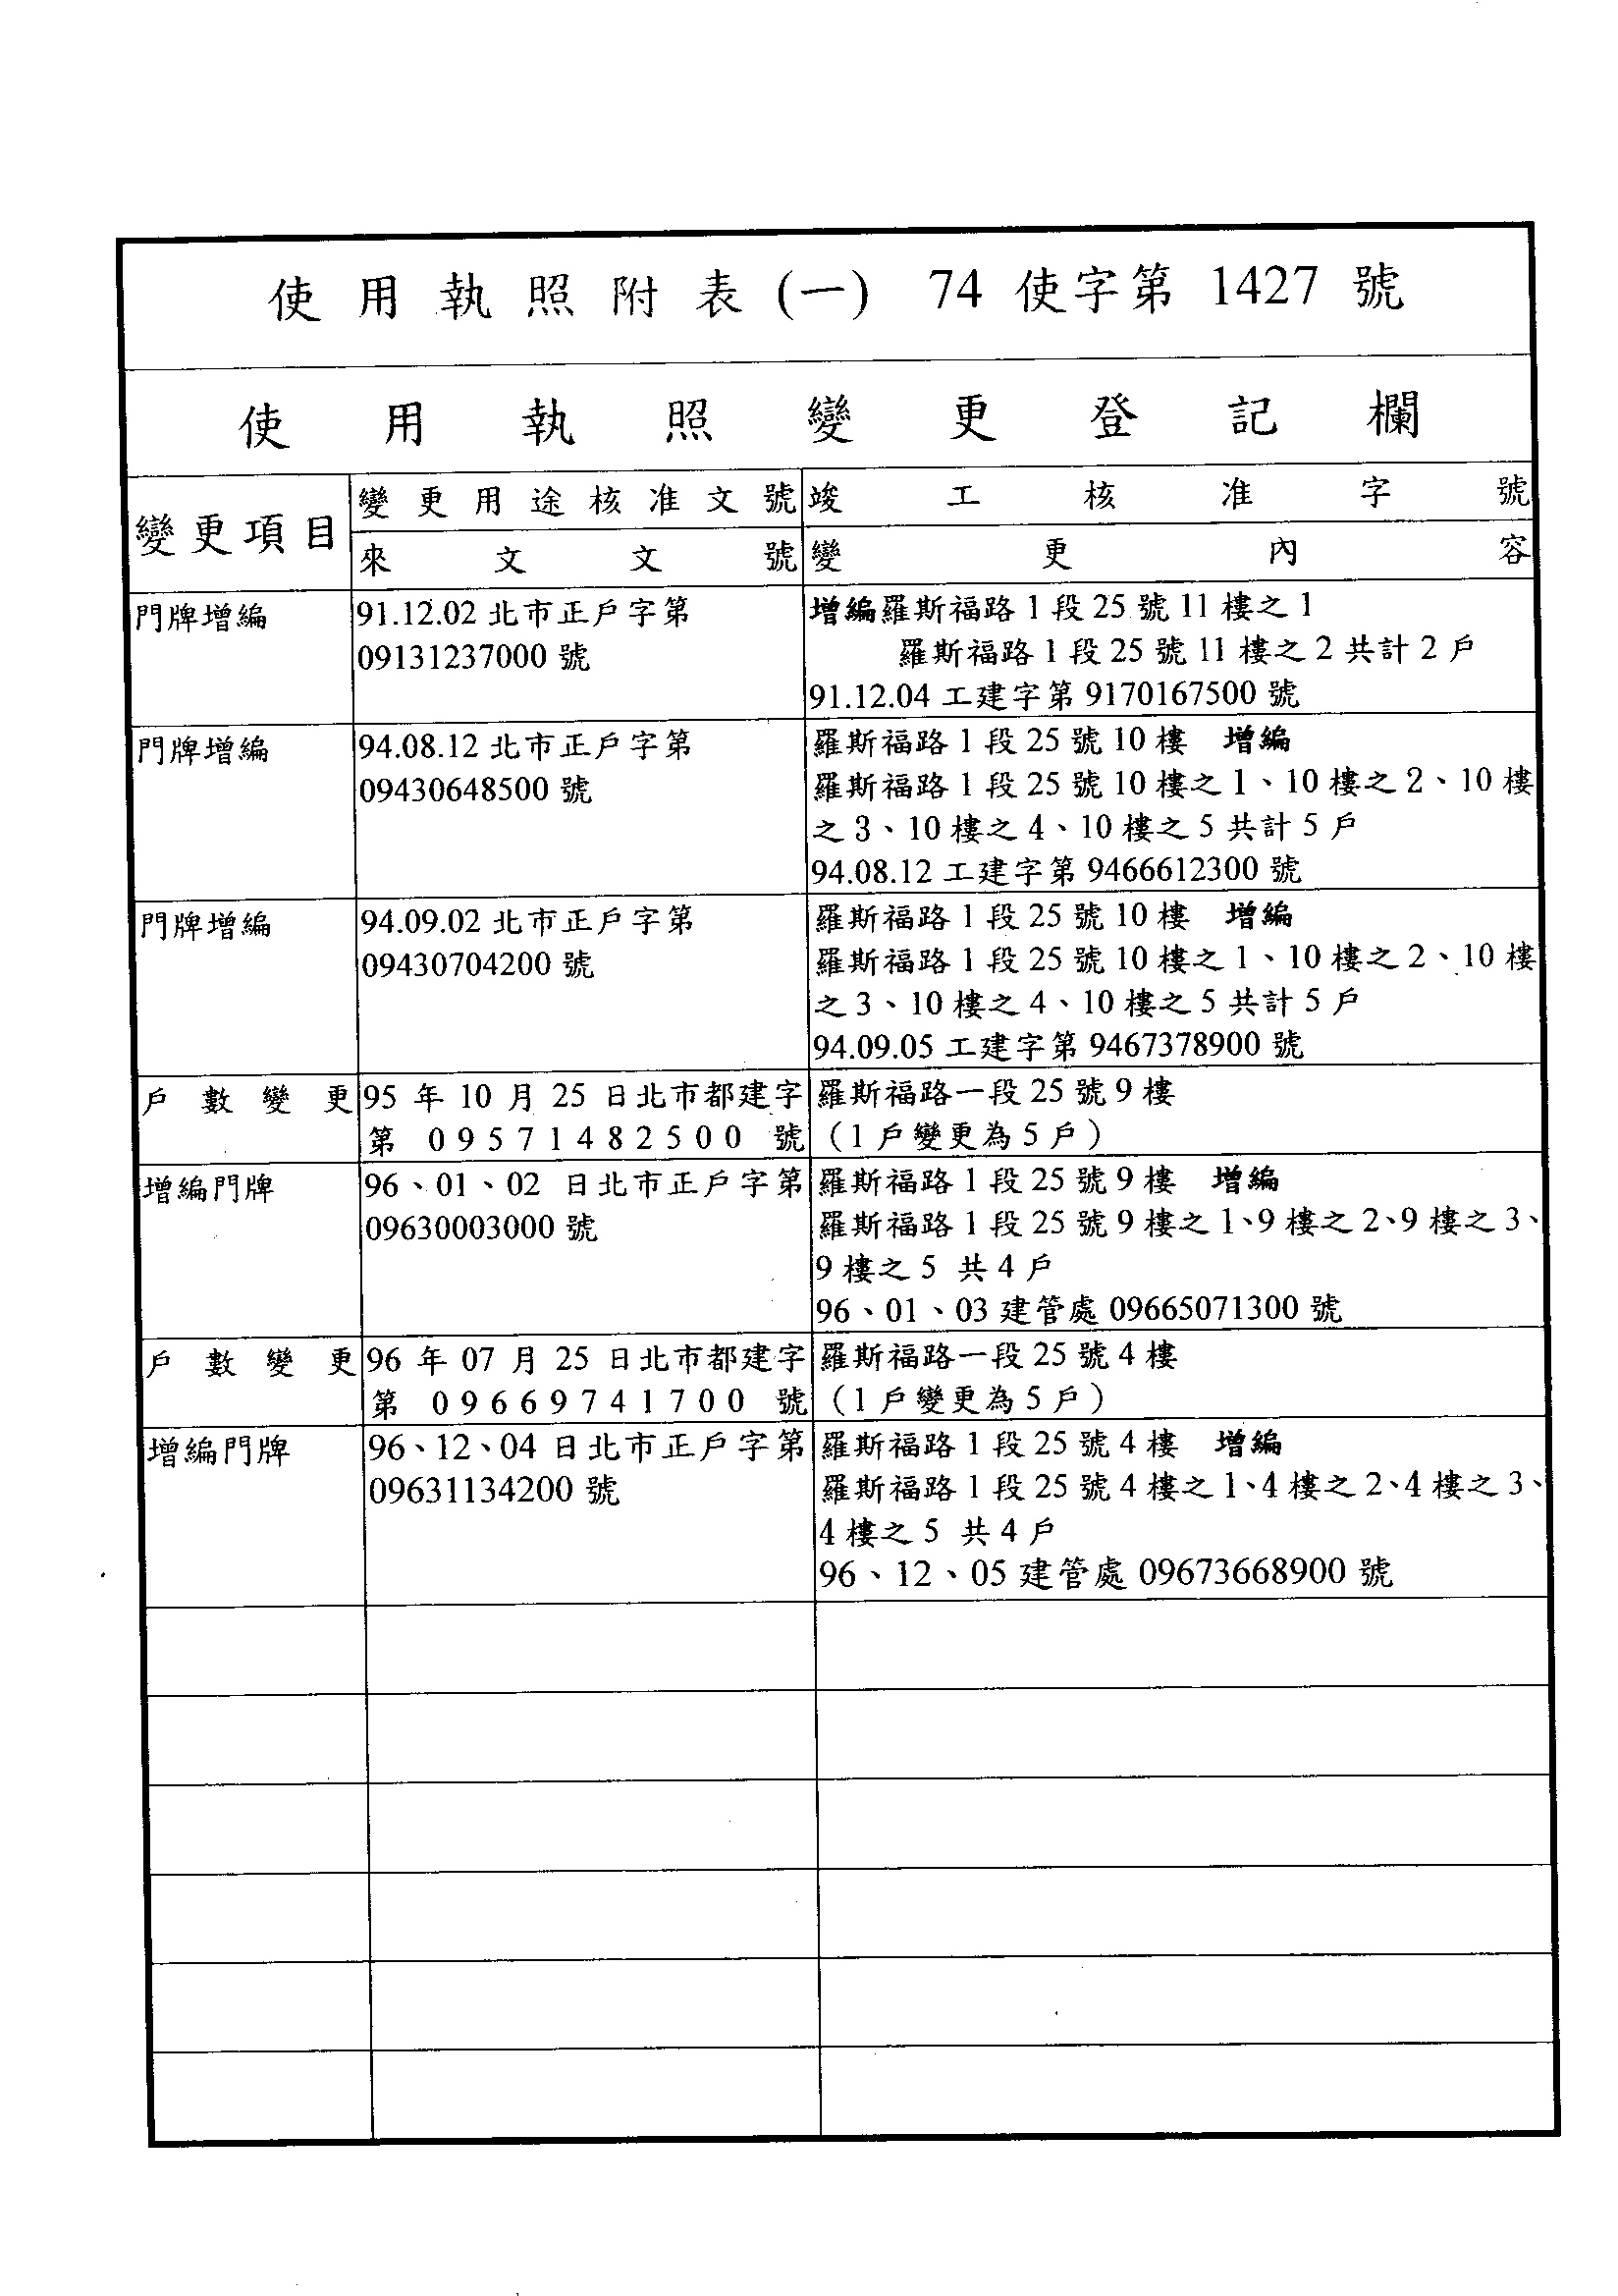 使用執照附表(一) 74 使字第 1427 號
使用執照變更登記欄
變更項目
變更用途核准文號
竣工核准字號
來文文號
變更內容
門牌增編
91.12.02 北市正戶字第
09131237000 號
增編羅斯福路 1 段 25 號 11 樓之 1
羅斯福路 1 段 25 號 11 樓之 2 共計 2 戶
91.12.04 工建字第 9170167500 號
門牌增編
94.08.12 北市正戶字第
09430648500 號
羅斯福路 1 段 25 號 10 樓 增編
羅斯福路 1 段 25 號 10 樓之 1、10 樓之 2、10 樓
之 3、10 樓之 4、10 樓之 5 共計 5 戶
94.08.12 工建字第 9466612300 號
門牌增編
94.09.02 北市正戶字第
09430704200 號
羅斯福路 1 段 25 號 10 樓 增編
羅斯福路 1 段 25 號 10 樓之 1、10 樓之 2、10 樓
之 3、10 樓之 4、10 樓之 5 共計 5 戶
94.09.05 工建字第 9467378900 號
戶數變更
95 年 10 月 25 日北市都建字
第 09571482500 號
羅斯福路一段 25 號 9 樓
（1 戶變更為 5 戶）
增編門牌
96、01、02 日北市正戶字第
09630003000 號
羅斯福路 1 段 25 號 9 樓 增編
羅斯福路 1 段 25 號 9 樓之 1、9 樓之 2、9 樓之 3、
9 樓之 5 共 4 戶
96、01、03 建管處 09665071300 號
戶數變更
96 年 07 月 25 日北市都建字
第 09669741700 號
羅斯福路一段 25 號 4 樓
（1 戶變更為 5 戶）
增編門牌
96、12、04 日北市正戶字第
09631134200 號
羅斯福路 1 段 25 號 4 樓 增編
羅斯福路 1 段 25 號 4 樓之 1、4 樓之 2、4 樓之 3、
4 樓之 5 共 4 戶
96、12、05 建管處 09673668900 號